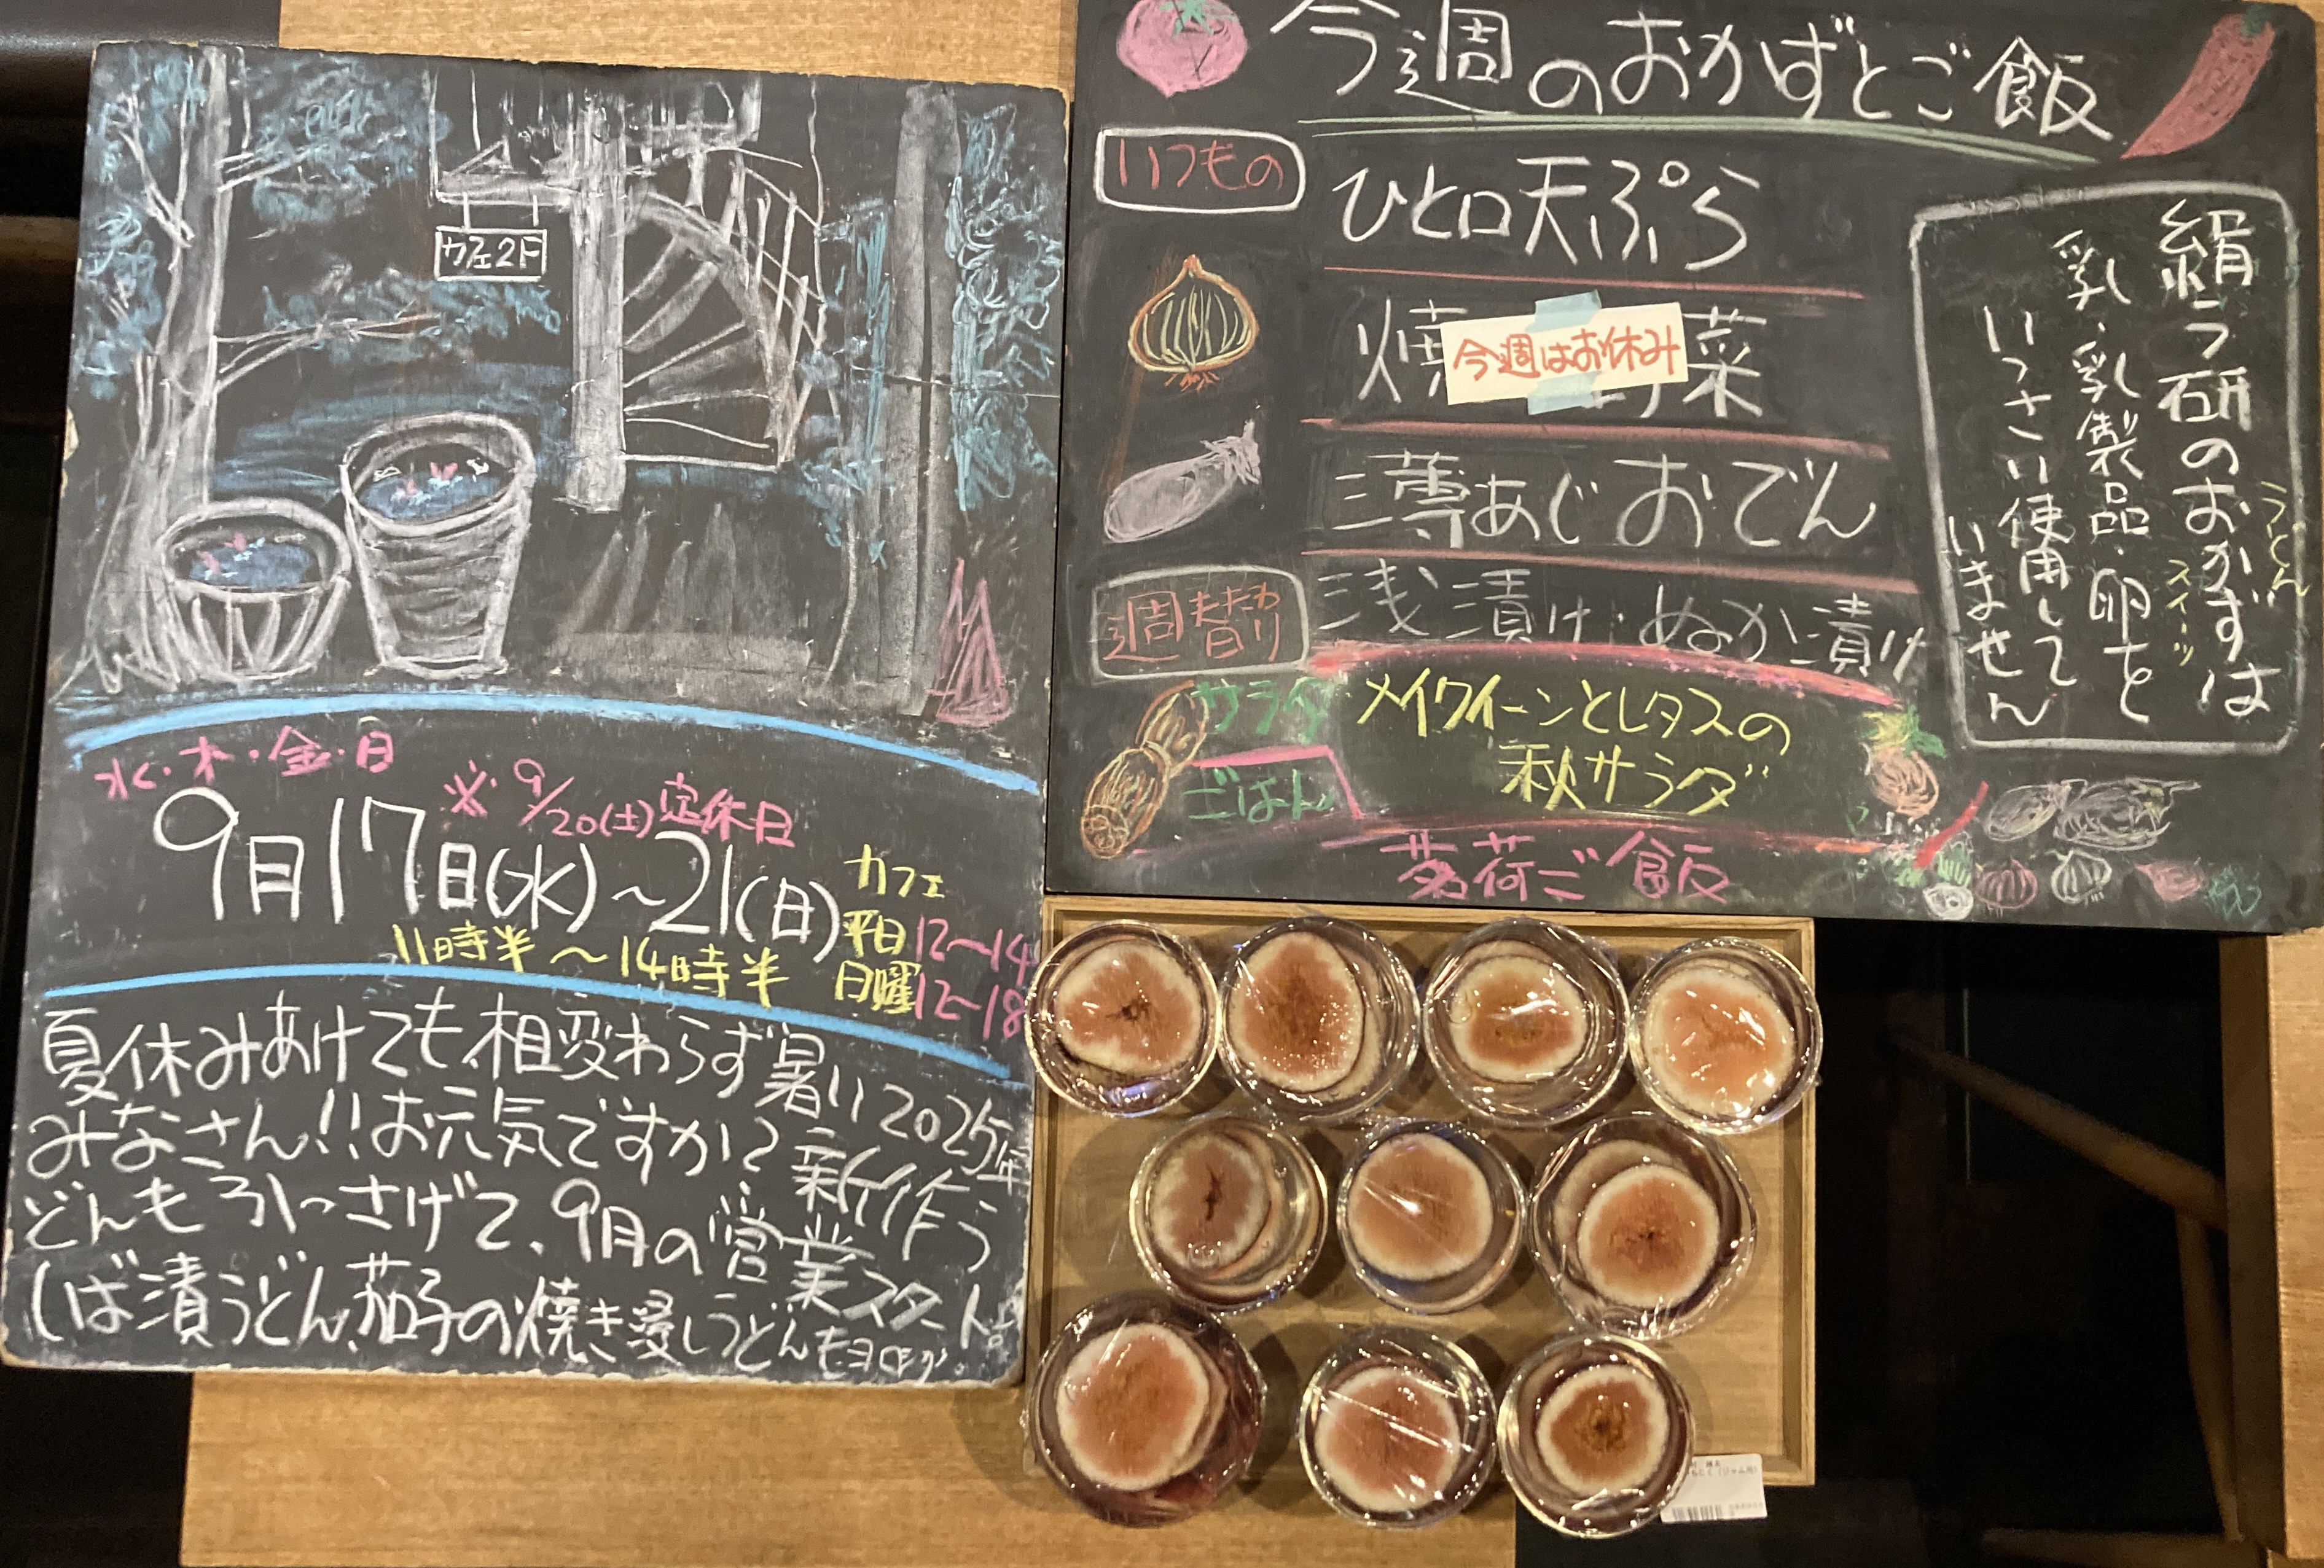 カフェ2F
水・木・金・日
※9/20(土)定休日
9月17日(水)〜21(日)
11時半〜14時半
カフェ
平日12〜14
日曜12〜18
夏休みあけても、相変わらず暑い2025年
みなさん!!お元気ですか?新作う
どんもひっさげて、9月の営業スタート。
しば漬うどん、茄子の焼き浸しうどんもヨロシク。
今週のおかずとご飯
いつもの
ひと口天ぷら
焼 菜
今週はお休み
薄あじおでん
週替わり
浅漬け・ぬか漬け
サラダ
メイクイーンとレタスの
秋サラダ
ごはん
茗荷ご飯
絹う研のおかずは
うどん
スイーツ
乳、乳製品・卵を
いっさい使用して
いません